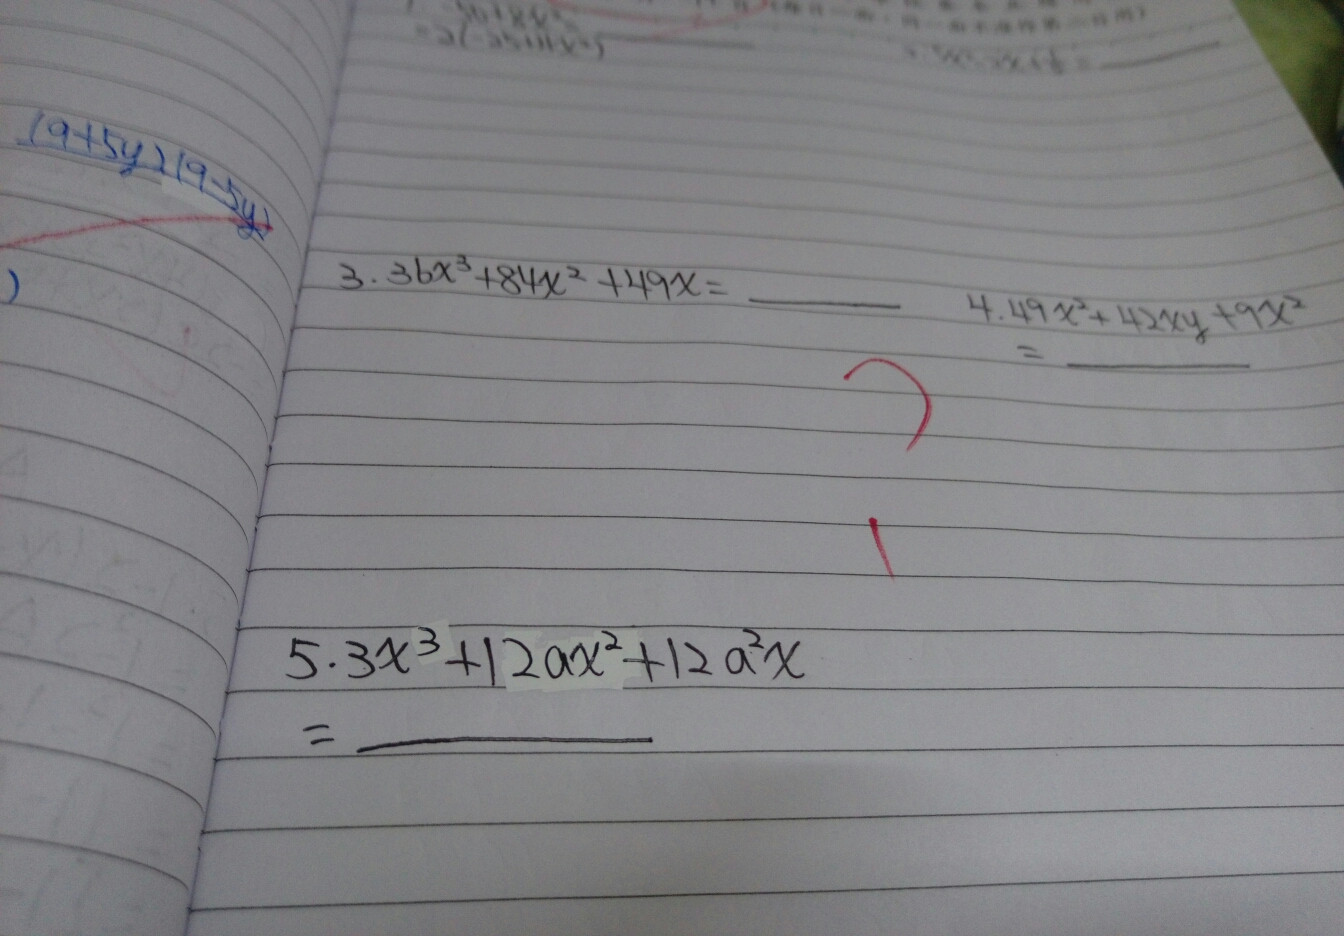 =2(-25+16x²)
(9+5y)(9-5y)
)
3.36x³+84x²+49x=
4.49x²+42xy+9x²
=
5.3x³+12ax²+12a²x
=